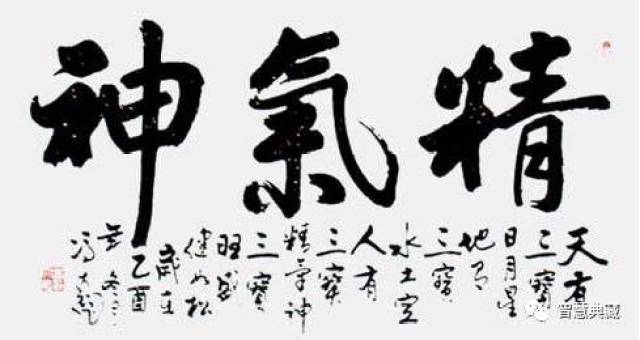 精氣神
天有
三寶
日月星
地有
三寶
水土
人有
三寶
精氣神
三寶
旺盛
健如松
歲在
乙酉
冬
馮大
智慧典藏